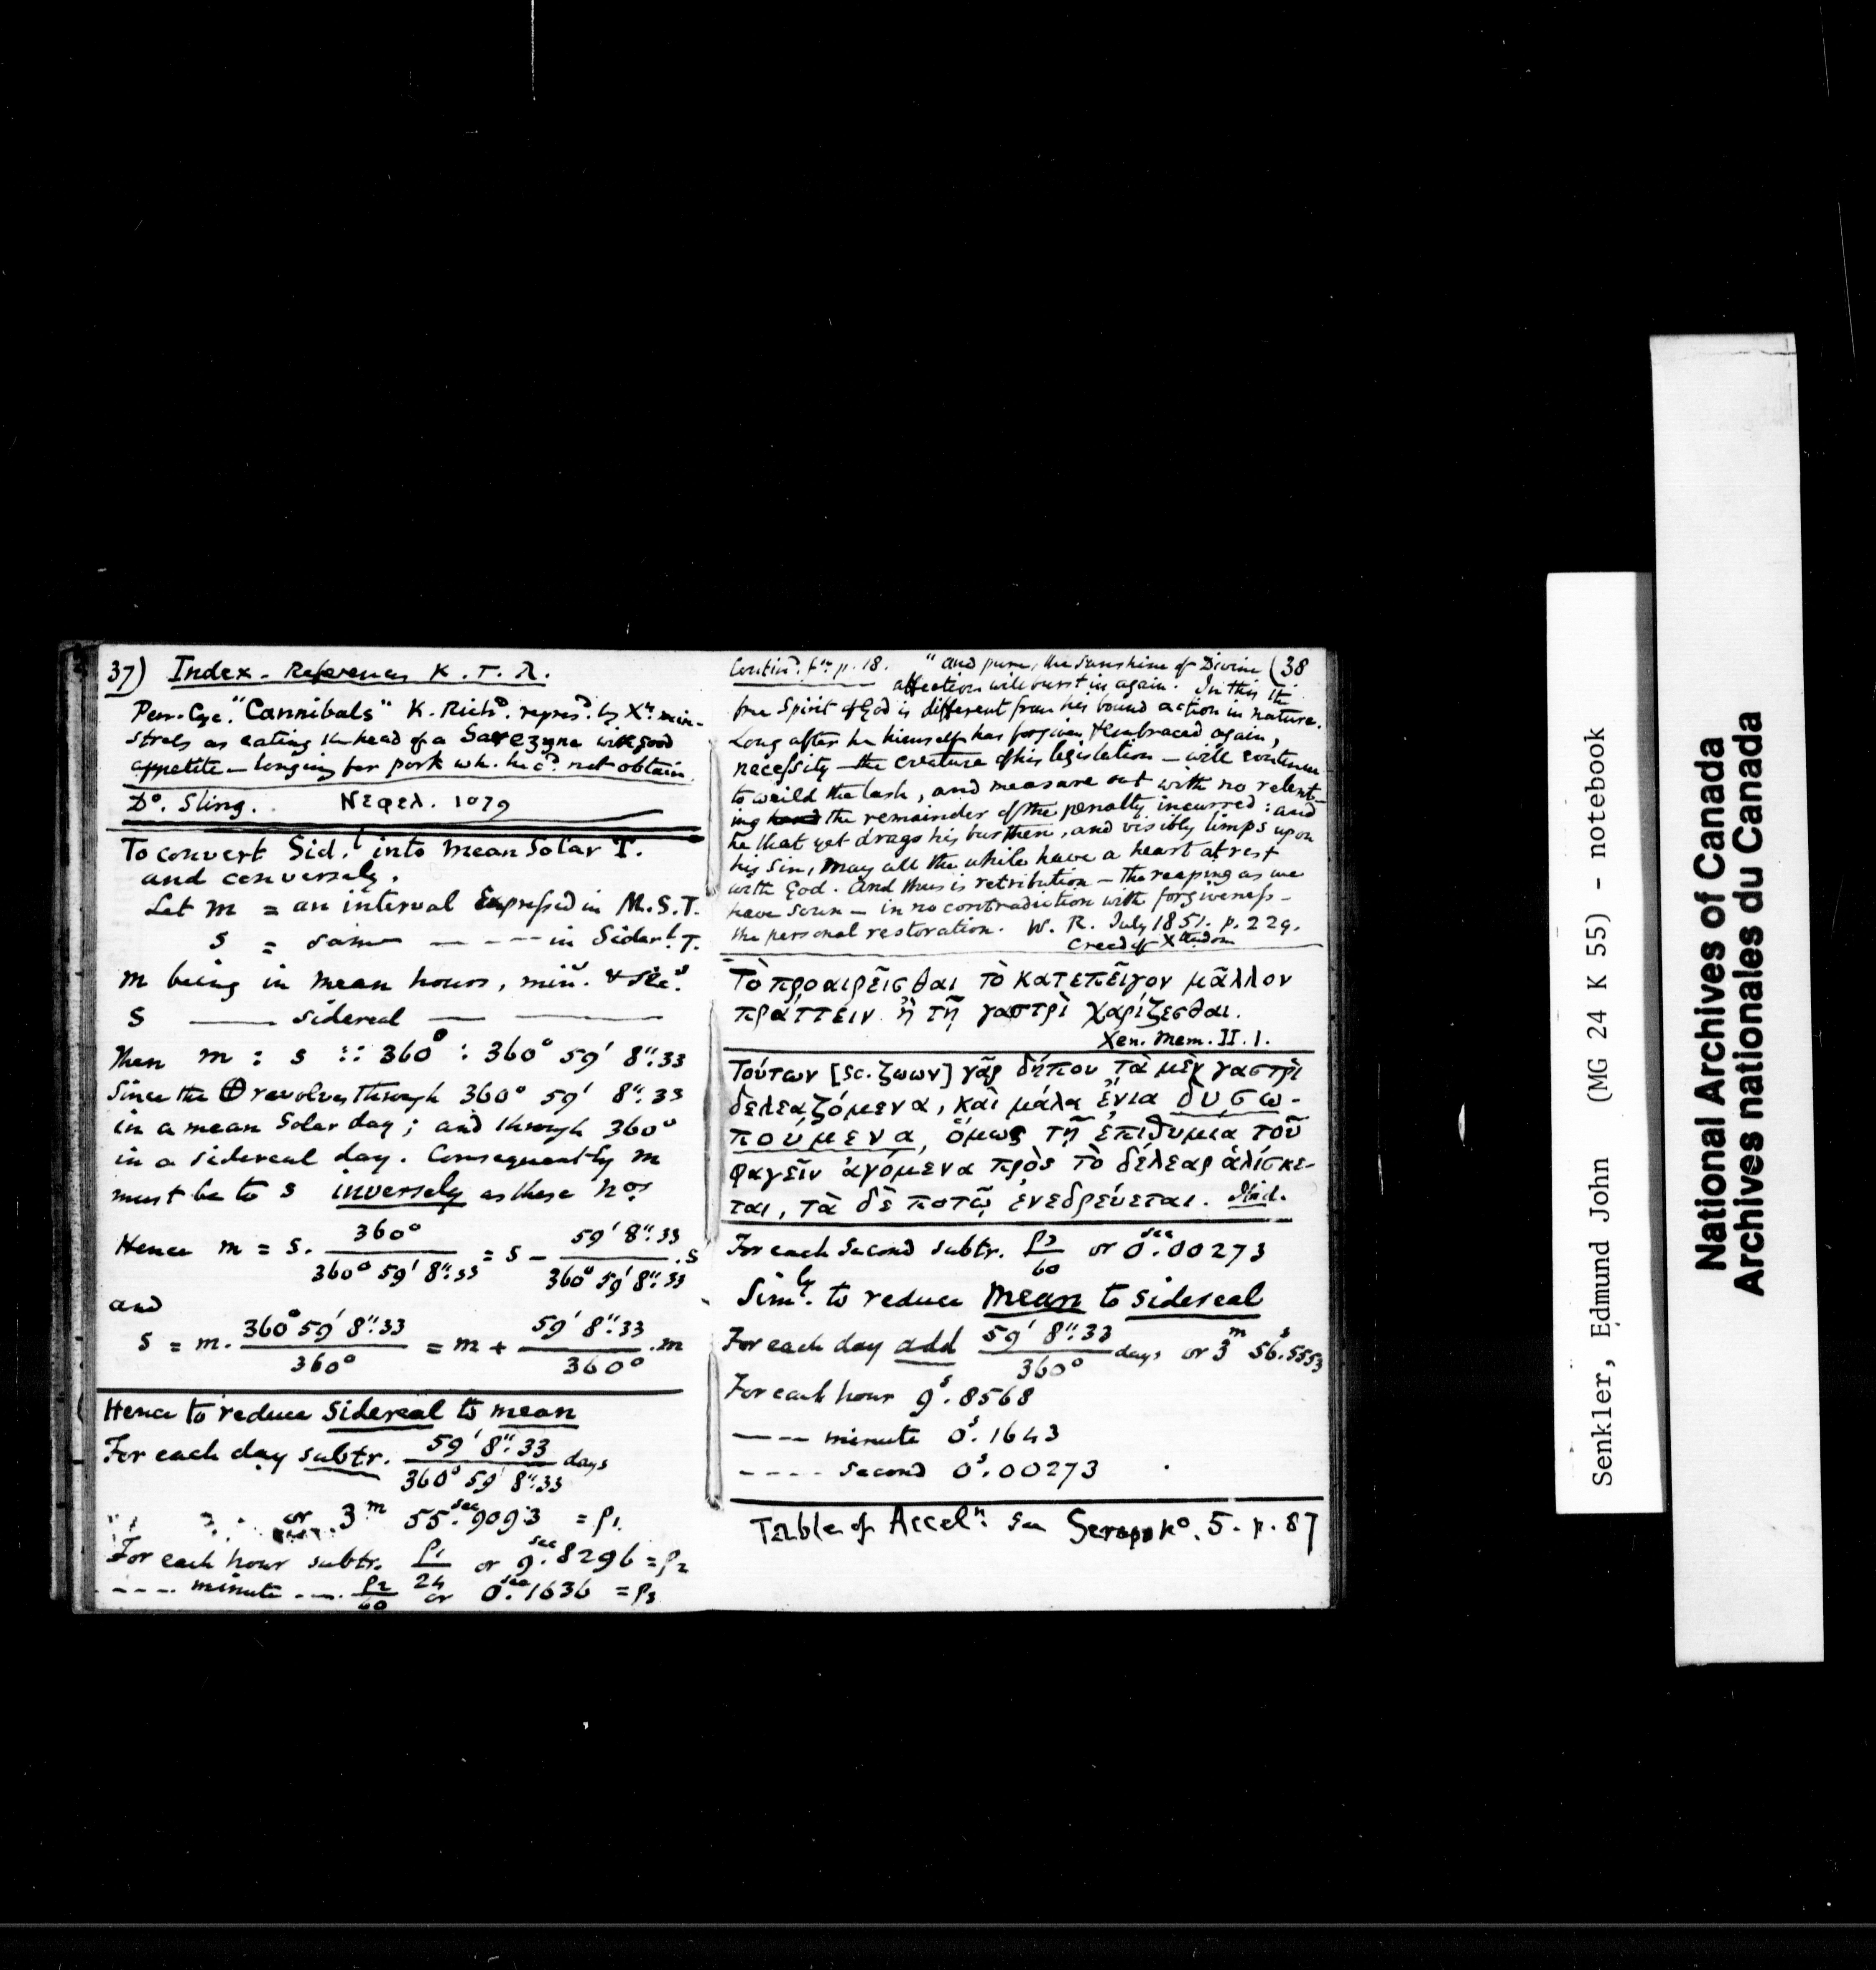 37) Index - References κ. τ. λ.
Pen. Cyc. "Cannibals" K. Richd. represd. by Xn. min-
strels as eating the head of a Sarezyne with good
appetite - longing for pork wh. he cd. not obtain
Do. Sling. Νεφελ. 1079
To convert Sid.l into mean Solar T.
and conversely.
Let m = an interval Expressed in M.S.T.
s = same - - - - in Sider.l T.
m being in mean hours, min.s & sec.s
s —— sidereal —— ——
Then m : s :: 360° : 360° 59' 8".33
Since the ⊕ revolves through 360° 59' 8".33
in a mean Solar day; and through 360°
in a sidereal day. Consequently m
must be to s inversely as these nos.
Hence m = s. 360° / 360° 59' 8".33 = s - 59' 8".33 / 360° 59' 8".33 .s
and
s = m. 360° 59' 8".33 / 360° = m + 59' 8".33 / 360° .m
Hence to reduce Sidereal to mean
For each day subtr. 59' 8".33 / 360° 59' 8".33 days
" " or 3m 55.sec9093 = ρ1
For each hour subtr. ρ1/24 or 9.sec8296 = ρ2
- - - - minute - - - ρ2/60 or 0.sec1636 = ρ3
Contind. fm. p. 18. "and pure, the sunshine of Divine (38
affection will burst in again. In this the
free Spirit of God is different from his bound action in nature.
Long after he himself has forgiven & embraced again,
necessity - the creature of his legislation - will continue
to weild the lash, and measure out with no relent-
ing the remainder of the penalty incurred: and
he that yet drags his burthen, and visibly limps upon
his sin, may all the while have a heart at rest
with God. And thus is retribution - the reaping as we
have sown - in no contradiction with forgiveness -
the personal restoration. W. R. July 1851. p. 229.
Creed of Xtendom
Τὸ προαιρεῖσθαι τὸ κατεπεῖγον μᾶλλον
πράττειν ἢ τῇ γαστρὶ χαρίζεσθαι.
Xen. Mem. II. 1.
Τούτων [sc. ζωων] γὰρ δήπου τὰ μὲν γαστρὶ
δελεαζόμενα, καὶ μάλα ἔνια δυσω-
πούμενα, ὅμως τῇ ἐπιθυμια τοῦ
φαγεῖν ἀγόμενα πρὸς τὸ δέλεαρ ἁλίσκε-
ται, τὰ δὲ ποτῷ ἐνεδρεύεται. Ibid.
For each second subtr. ρ3/60 or 0.sec00273
Simly. to reduce mean to sidereal
For each day add 59' 8".33 / 360° days or 3m 56.s5553
For each hour 9s.8568
- - - - minute 0s.1643
- - - - second 0s.00273
Table of Acceln. see Scrap No. 5. p. 87
Senkler, Edmund John (MG 24 K 55) - notebook
National Archives of Canada
Archives nationales du Canada